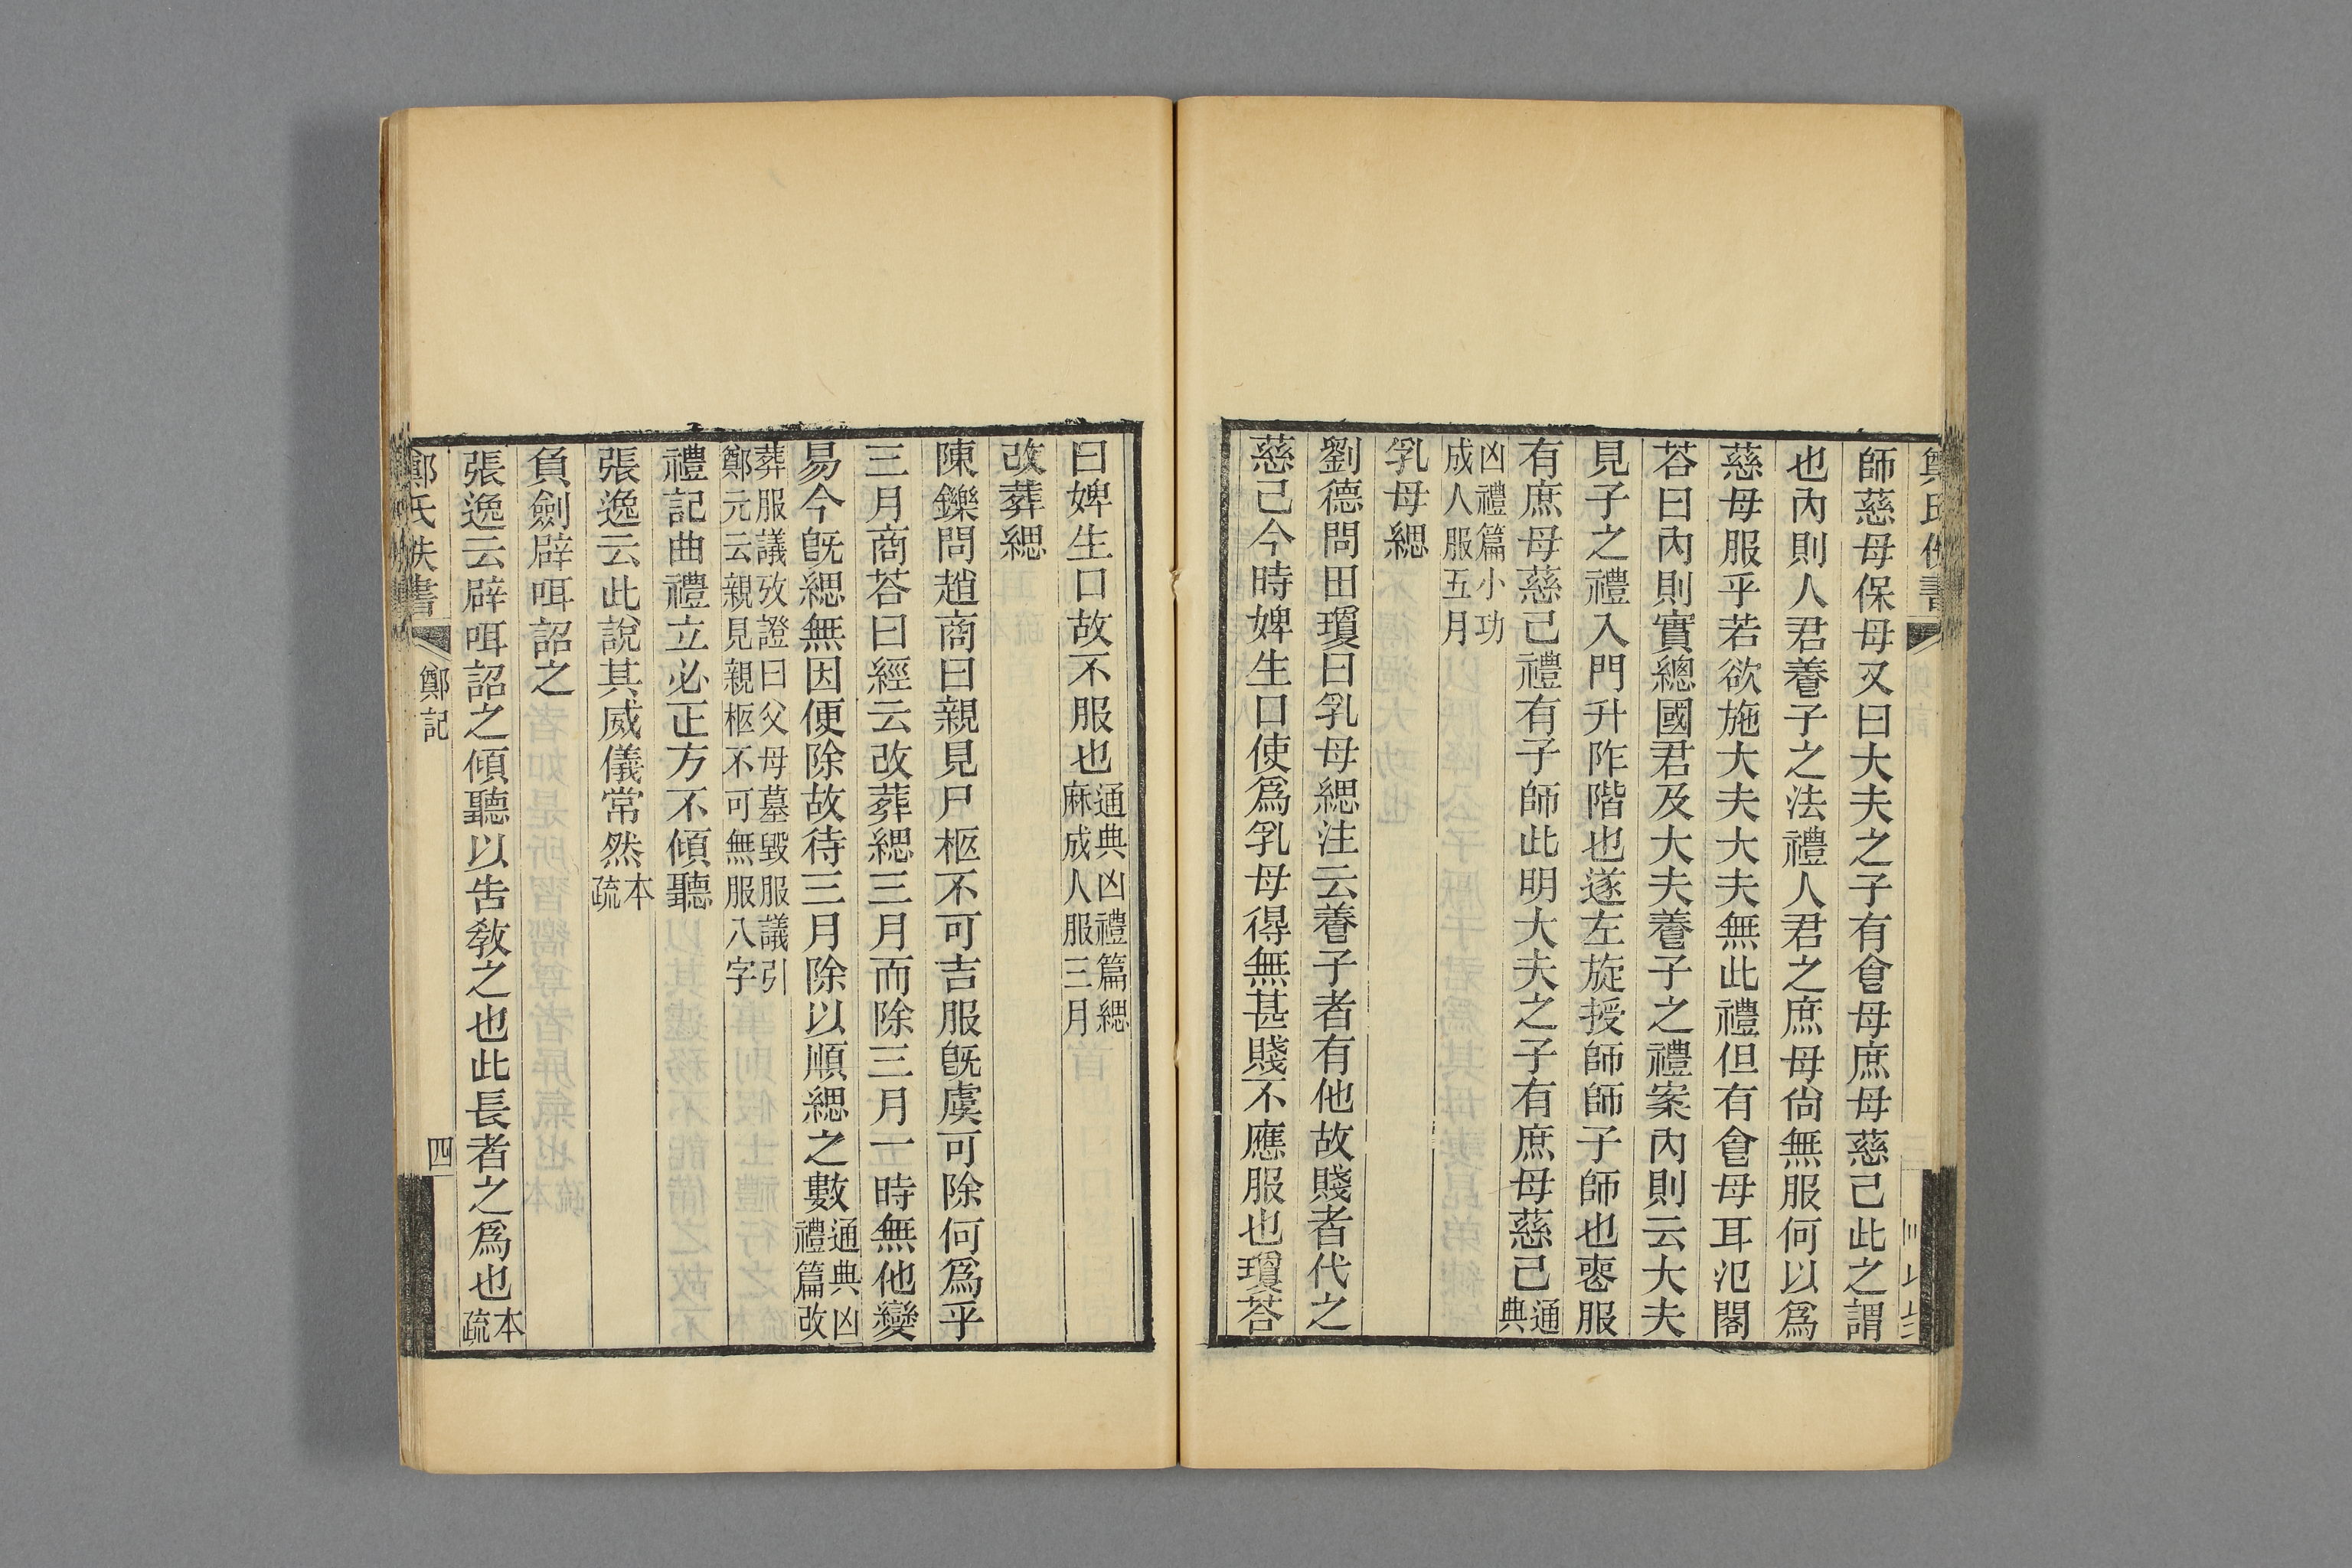 師慈母保母又曰大夫之子有食母庶母慈己此之謂
也內則人君養子之法禮人君之庶母尙無服何以爲
慈母服乎若欲施大夫大夫無此禮但有食母耳氾閣
荅曰內則實總國君及大夫養子之禮案內則云大夫
見子之禮入門升阼階也遂左旋授師師子師也喪服
有庶母慈己禮有子師此明大夫之子有庶母慈己通典
凶禮篇小功
成人服五月
乳母緦
劉德問田瓊曰乳母緦注云養子者有他故賤者代之
慈己今時婢生口使爲乳母得無甚賤不應服也瓊荅
曰婢生口故不服也通典凶禮篇緦麻成人服三月
改葬緦
陳鑠問趙商曰親見尸柩不可吉服旣虞可除何爲乎
三月商荅曰經云改葬緦三月而除三月一時無他變
易今旣緦無因便除故待三月除以順緦之數通典凶禮篇改
葬服議攷證曰父母墓毀服議引
鄭元云親見親柩不可無服八字
禮記曲禮立必正方不傾聽
張逸云此說其威儀常然本疏
負劍辟咡詔之
張逸云辟咡詔之傾聽以告敎之也此長者之爲也本疏
鄭氏佚書
鄭記
四